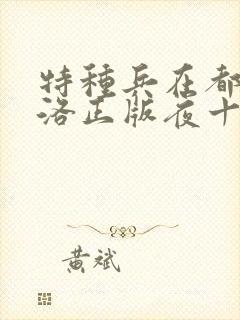 特種兵在都
洛正版夜十
黄斌